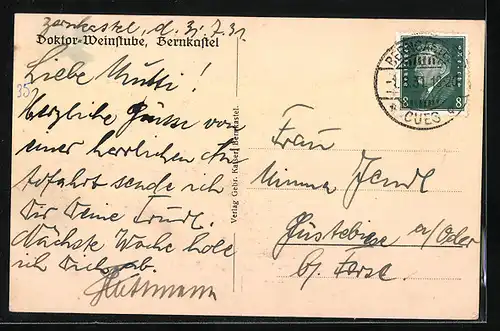 Bernkastel, d. 31.7.31.
Doktor-Weinstube, Bernkastel
Liebe Mutti!
herzliche Grüsse von
einer herrlichen Au
tofahrt sende ich
Dir Deine Trudl.
Nächste Woche hole
ich Dich ab.
35
Verlag Gebr. Kaiser, Bernkastel.
BERNKASTEL
CUES
8 8
Frau
Minna
a/Oder
b/ Forst.